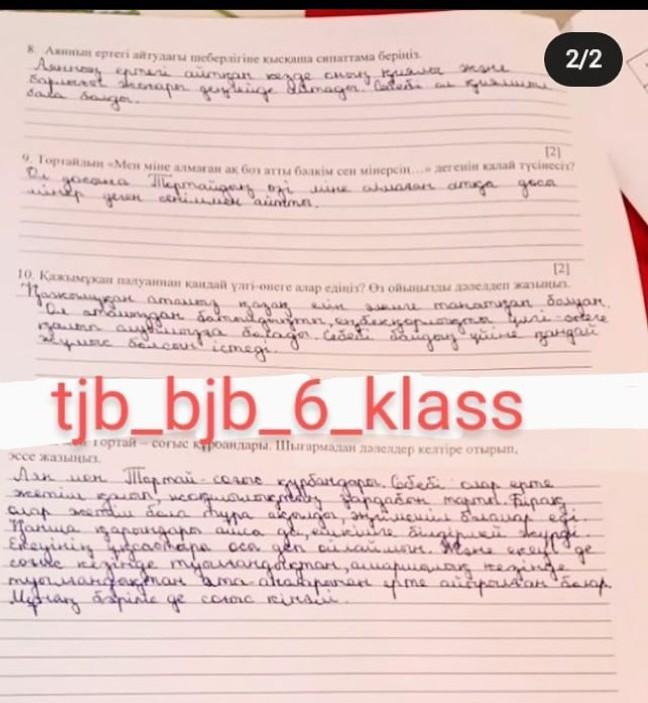 2/2
8. Аянның ертегі айтудағы шеберлігіне қысқаша сипаттама беріңіз.
Аянның ертегі айтқан кезде оның қиялы және
барлығы жоғары деңгейде болады. Себебі ол қиялшыл
бала болды.
[2]
9. Тортайдың «Мен міне алмаған ақ боз атты бәлкім сен мінерсің...» дегенін қалай түсінесіз?
Ол досына Тортайдың өзі міне алмаған атқа досы
мінер деген сеніммен айтты.
[2]
10. Қажымұқан палуаннан қандай үлгі-өнеге алар едіңіз? Өз ойыңызды дәлелдеп жазыңыз.
Қажымұқан атамыз қазақ елін әлемге танытқан болған.
Ол атамыздан батылдықты, еңбекқорлықты үлгі-өнеге
қылып алуымызға болады. Себебі байдың үйіне қандай
жұмыс болсын істеді.
tjb_bjb_6_klass
Тортай – соғыс құрбандары. Шығармадан дәлелдер келтіре отырып,
эссе жазыңыз.
Аян мен Тортай - соғыс құрбандары. Себебі олар ерте
жетім қалып, жоқшылықтың зардабын тартты. Бірақ
олар жетім бала тұра ақылды, әңгімешіл балалар еді.
Қанша қарындары ашса да, ешкімге білдірмей жүрді.
Екеуінің ұқсастығы осы деп ойлаймын. Және екеуі де
соғыс кезінде туылғандықтан, ашаршылық кезінде
туылғандықтан ата-анасынан ерте айырылған балар.
Мұның бәріне де соғыс кінәлі.